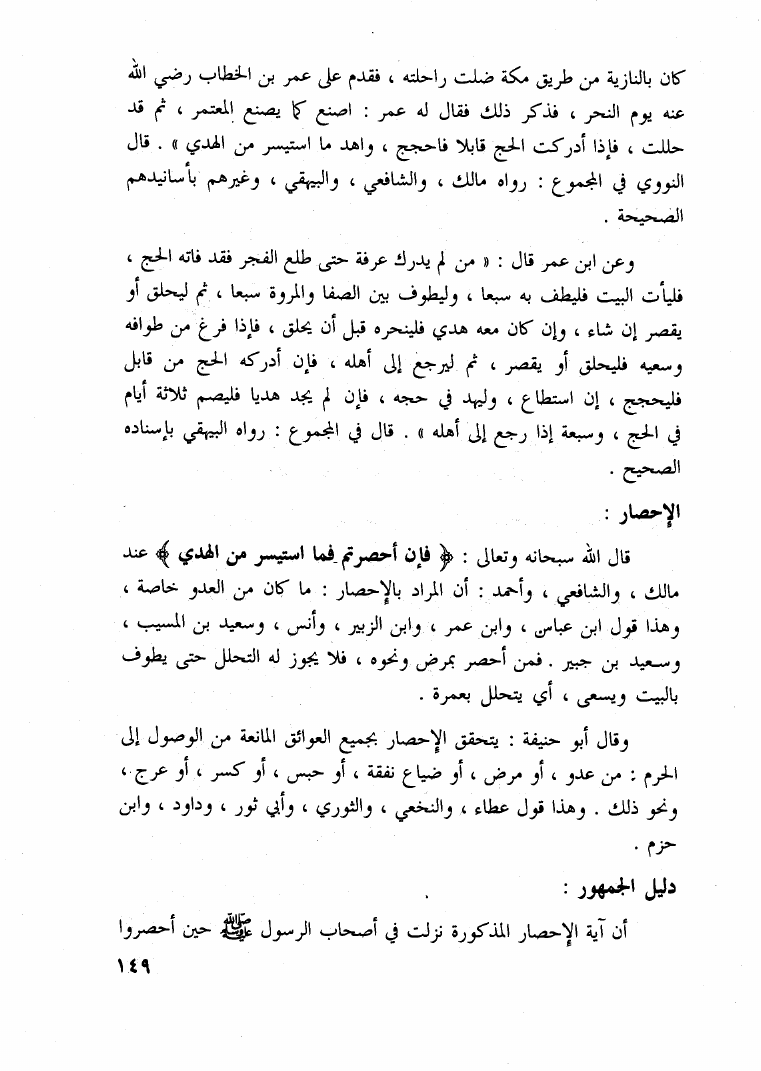 كان بالنازية من طريق مكة ضلت راحلته ، فقدم على عمر بن الخطاب رضي الله
عنه يوم النحر ، فذكر ذلك فقال له عمر : اصنع كما يصنع المعتمر ، ثم قد
حللت ، فإذا أدركت الحج قابلا فاحجج ، واهد ما استيسر من الهدي » . قال
النووي في المجموع : رواه مالك ، والشافعي ، والبيهقي ، وغيرهم بأسانيدهم
الصحيحة .
وعن ابن عمر قال : « من لم يدرك عرفة حتى طلع الفجر فقد فاته الحج ،
فليأت البيت فليطف به سبعا ، وليطوف بين الصفا والمروة سبعا ، ثم ليحلق أو
يقصر إن شاء ، وإن كان معه هدي فلينحره قبل أن يحلق ، فإذا فرغ من طوافه
وسعيه فليحلق أو يقصر ، ثم ليرجع إلى أهله ، فإن أدركه الحج من قابل
فليحجج ، إن استطاع ، وليهد في حجه ، فإن لم يجد هديا فليصم ثلاثة أيام
في الحج ، وسبعة إذا رجع إلى أهله » . قال في المجموع : رواه البيهقي بإسناده
الصحيح .
الإحصار :
قال الله سبحانه وتعالى : ﴿ فإن أحصرتم فما استيسر من الهدي ﴾ عند
مالك ، والشافعي ، وأحمد : أن المراد بالإحصار : ما كان من العدو خاصة ،
وهذا قول ابن عباس ، وابن عمر ، وابن الزبير ، وأنس ، وسعيد بن المسيب ،
وسعيد بن جبير . فمن أحصر بمرض ونحوه ، فلا يجوز له التحلل حتى يطوف
بالبيت ويسعى ، أي يتحلل بعمرة .
وقال أبو حنيفة : يتحقق الإحصار بجميع العوائق المانعة من الوصول إلى
الحرم : من عدو ، أو مرض ، أو ضياع نفقة ، أو حبس ، أو كسر ، أو عرج ،
ونحو ذلك . وهذا قول عطاء ، والنخعي ، والثوري ، وأبي ثور ، وداود ، وابن
حزم .
دليل الجمهور :
أن آية الإحصار المذكورة نزلت في أصحاب الرسول ﷺ حين أحصروا
١٤٩